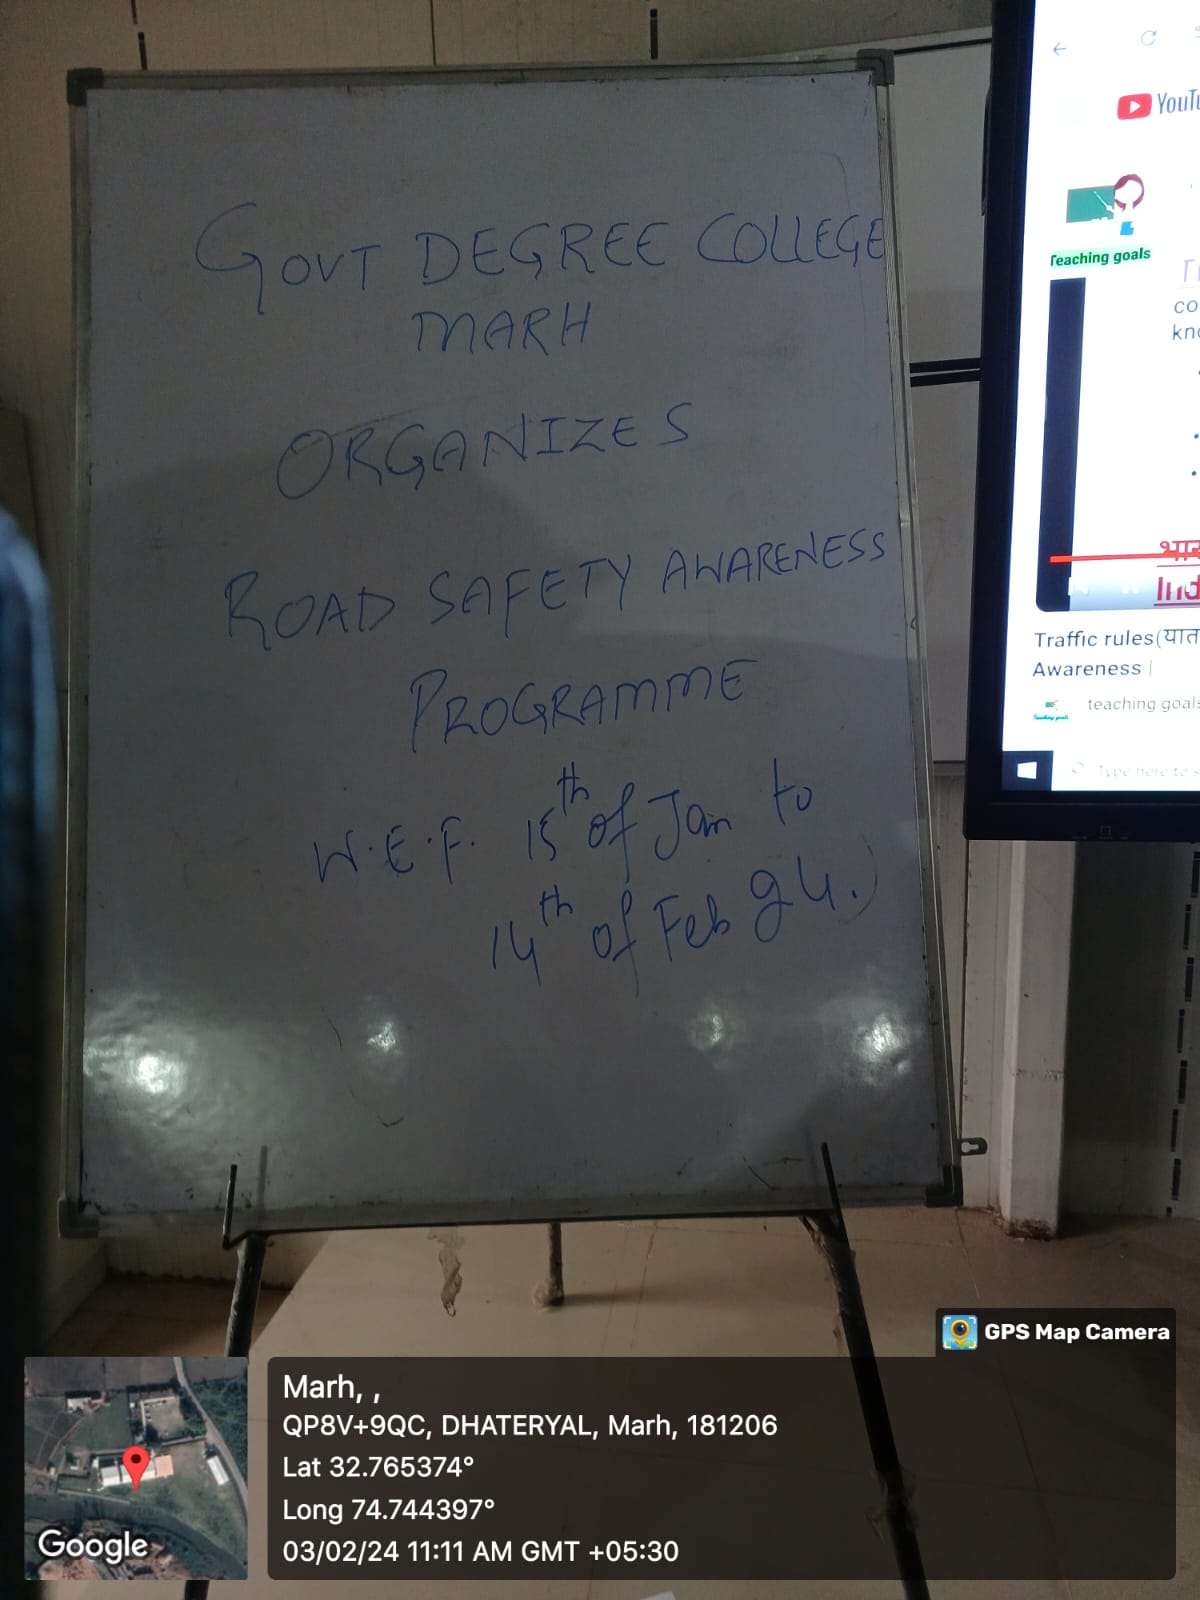 GOVT DEGREE COLLEGE
MARH
ORGANIZES
ROAD SAFETY AWARENESS
PROGRAMME
W.E.F. 15th of Jan to
14th of Feb 24.
YouTu
Teaching goals
co
kno
भार
Ind
Traffic rules(यात
Awareness |
teaching goals
Type here to s
GPS Map Camera
Marh, ,
QP8V+9QC, DHATERYAL, Marh, 181206
Lat 32.765374°
Long 74.744397°
03/02/24 11:11 AM GMT +05:30
Google